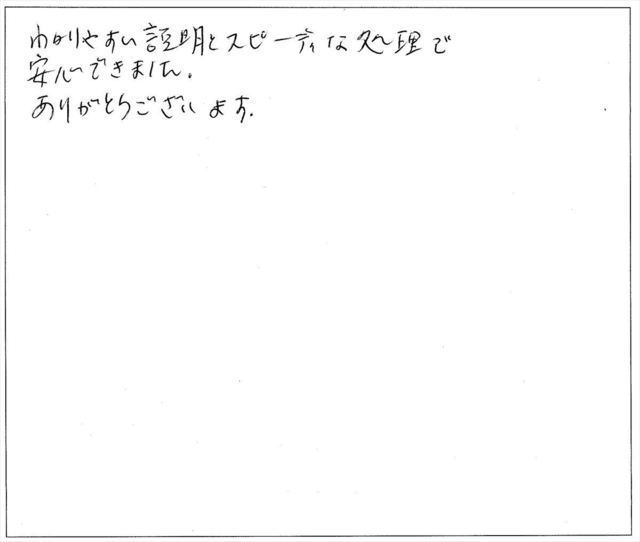 わかりやすい説明とスピーディな処理で
安心できました。
ありがとうございます。